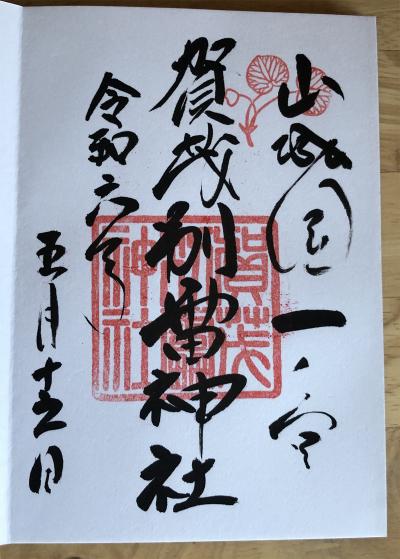 山城国一之宮
賀茂別雷神社
令和六年
五月十五日
賀茂別雷神社